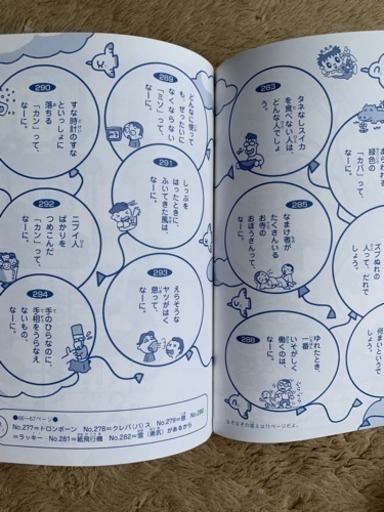 緑色の
「カバ」って、
なーに。
ズブぬれの
人って、だれで
しょう。
283
タネなしスイカ
を食べない人は、
どんな人でしょ
う。
285
なまけ者が
たくさんいる
お寺の
おぼうさんって、
なーに。
288
ゆれたとき、
一番
いそがしく
働くのは、
なーに。
289
どんなに使って
も、ぜったいに
なくならない
「ミソ」って、
なーに。
291
しっぷを
はったときに、
ふいてきた風は、
なーに。
293
えらそうな
ヤツがはく
息って、
なーに。
290
すな時計のすな
といっしょに
落ちる
「カン」って、
なーに。
292
ニブイ人
ばかりを
つめこんだ
「カン」って、
なーに。
294
手のひらなのに、
手相をうらなえ
ないもの、
なーに。
●66〜67ページ●
No.277=トロンボーン No.278=クレパ(パ)ス No.279=
=ラッキー No.281=紙飛行機 No.282= があるから